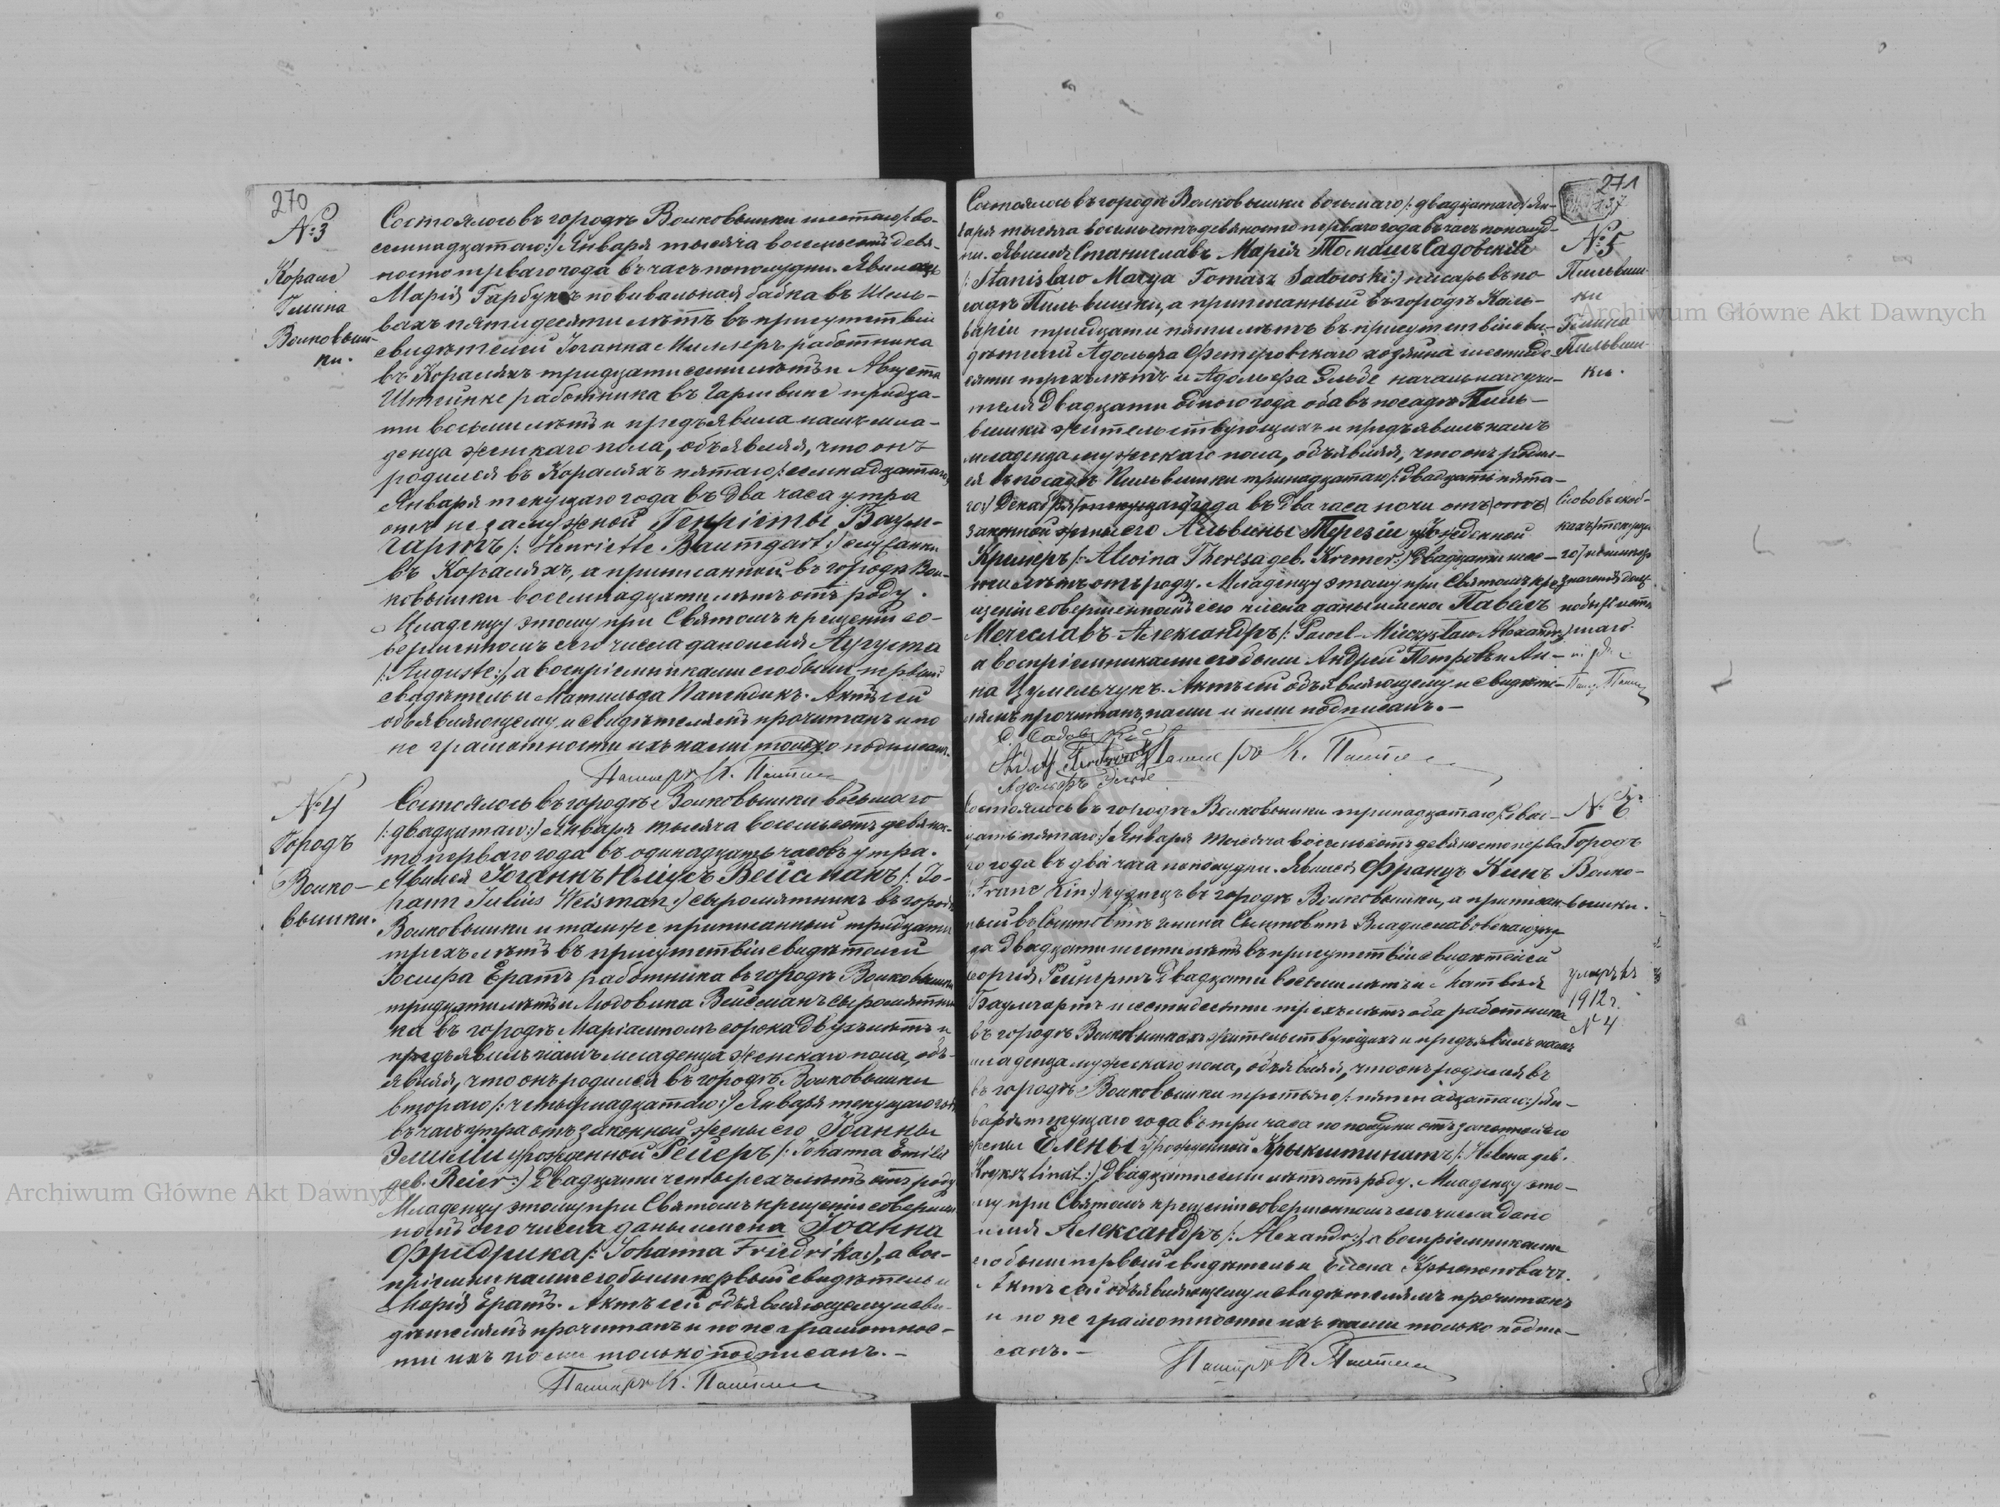 270
№ 3
Кораля
Гмина
Волковыш-
ки.
Состоялось въ городѣ Волковышки шестаго /: во-
семнадцатаго :/ Января тысяча восемьсотъ девя-
носто перваго года въ часъ пополудни. Явилась
Марія Гарбукъ повивальная бабка въ Шель-
вахъ пятидесяти лѣтъ въ присутствіи
свидѣтелей Іоганна Миллеръ работника
въ Кораляхъ тридцати семи лѣтъ и Августа
работника въ тридца-
ти восьми лѣтъ и предъявила намъ мла-
денца женскаго пола, объявляя, что онъ
родился въ Кораляхъ пятаго /: семнадцатаго :/
Января текущаго года въ два часа утра
отъ незамужной Генріеты Баум-
гартъ /: Henriette Baumgart :/ служанки
въ Кораляхъ, а приписанной въ городѣ Вол-
ковышки восемнадцати лѣтъ отъ роду.
Младенцу этому при Святомъ крещеніи со-
вершенномъ сего числа дано имя Аугуста
/: Auguste :/, а воспріемниками его были первый
свидѣтель и Матильда Папендикъ. Актъ сей
объявляющему и свидѣтелямъ прочитанъ и по
не грамотности ихъ нами только подписанъ.
Пасторъ К.
№ 4
Городъ
Волко-
вышки.
Состоялось въ городѣ Волковышки восьмаго
/: двадцатаго :/ Января тысяча восемьсотъ девянос-
то перваго года въ одинадцать часовъ утра.
Явился Іоганнъ Юлiусъ Вейсманъ /: Jo-
hann Julius Weisman :/ сыромятникъ въ городѣ
Волковышки и тамже приписанный тридцати
трехъ лѣтъ въ присутствіи свидѣтелей
Іосифа Ератъ работника въ городѣ Волковышки
тридцати лѣтъ и Людовика Вейсманъ сыромятни-
ка въ городѣ Маріамполь сорока двухъ лѣтъ и
предъявилъ намъ младенца женскаго пола, объ-
являя, что онъ родился въ городѣ Волковышки
втораго /: четырнадцатаго :/ Января текущаго года
въ часъ утра отъ законной жены его Іоанны
Эмиліи урожденной Рейеръ /: Johanna Emilie
geb. Reier :/ двадцати четырехъ лѣтъ отъ роду
Младенцу этому при Святомъ крещеніи совершен-
номъ сего числа даны имена Іоанна
Фридрика /: Johanna Friedrika :/, а вос-
пріемниками его были первый свидѣтель и
Марія Ератъ. Актъ сей объявляющему и сви-
дѣтелямъ прочитанъ и по не грамотнос-
ти ихъ нами только подписанъ. —
Пасторъ К.
271
137
№ 5
Пильвиш-
ки
Гмина
Пильвиш-
ки.
Состоялось въ городѣ Волковышки восьмаго /: двадцатаго :/ Ян-
варя тысяча восемьсотъ девяносто перваго года въ часъ пополуд-
ни. Явился Станиславъ Марія Томашъ Садовскій
/: Stanisław Marya Tomasz Sadowski :/ писарь въ по-
садѣ Пильвишки, а приписанный въ городѣ Каль-
варіи тридцати пяти лѣтъ въ присутствіи сви-
дѣтелей Адольфа хозяина шестиде-
сяти трехъ лѣтъ и Адольфа Эльбе начальнаго учи-
теля двадцати одного года оба въ посадѣ Пиль-
вишки жительствующихъ и предъявилъ намъ
младенца мужескаго пола, объявляя, что онъ родил-
ся въ посадѣ Пильвишки тринадцатаго /: двадцать пята-
го :/ Декабря (текущаго) года въ два часа ночи отъ (отъ)
законной жены его Альвины Терезіи урожденной
Кремеръ /: Alwina Theresa geb. Kremer :/ двадцати шес-
ти лѣтъ отъ роду. Младенцу этому при Святомъ кре-
щеніи совершенномъ сего числа даны имена Павелъ
Мечеславъ Александръ /: Paweł Mieczysław Alexander :/
а воспріемниками его были Андрей Петровъ и Ан-
на Цумельчукъ. Актъ сей объявляющему и свидѣте-
лямъ прочитанъ, нами и ими подписанъ. —
Слово въ скоб-
кахъ /текуща-
го/
С. Садовскій
Пасторъ К.
Адольфъ Эльбе
№ 6
Городъ
Волко-
вышки.
Состоялось въ городѣ Волковышки тринадцатаго /: двад-
цать пятаго :/ Января тысяча восемьсотъ девяносто перва-
го года въ два часа пополудни. Явился Францъ Кинъ
/: Franc Kin :/ кузнецъ въ городѣ Волковышки, а приписан-
ный въ гмина Владиславовскаго уѣз-
да двадцати шести лѣтъ въ присутствіи свидѣтелей
Георгія двадцати восьми лѣтъ и Матвея
Баумгартъ шестидесяти трехъ лѣтъ оба работника
въ городѣ Волковышкахъ жительствующихъ и предъявилъ намъ
младенца мужескаго пола, объявляя, что онъ родился въ
въ городѣ Волковышки третьяго /: пятнадцатаго :/ Ян-
варя текущаго года въ три часа по полудни отъ законной его
жены Елены урожденной Крыкштинатъ /: Helena geb.
Krykztinat :/ двадцати семи лѣтъ отъ роду. Младенцу это-
му при Святомъ крещеніи совершенномъ сего числа дано
имя Александръ /: Alexander :/, а воспріемниками
его были первый свидѣтель и Елена
Актъ сей объявляющему и свидѣтелямъ прочитанъ
и по не грамотности ихъ нами только подпи-
санъ. —
Пасторъ К.
умеръ въ
1912 г.
№ 4
Archiwum Główne Akt Dawnych
Archiwum Główne Akt Dawnych